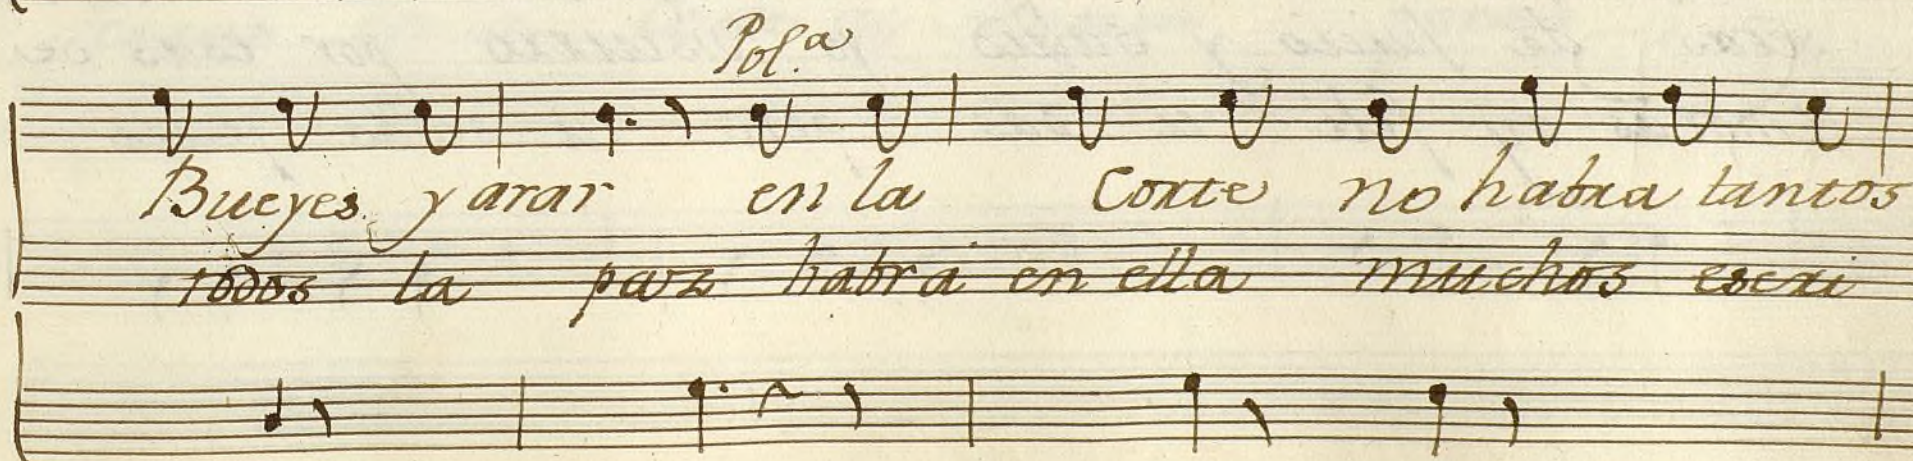 Pol.a
Bueyes y arar en la Corte no habra tantos
todos la paz habrá en ella muchos escri